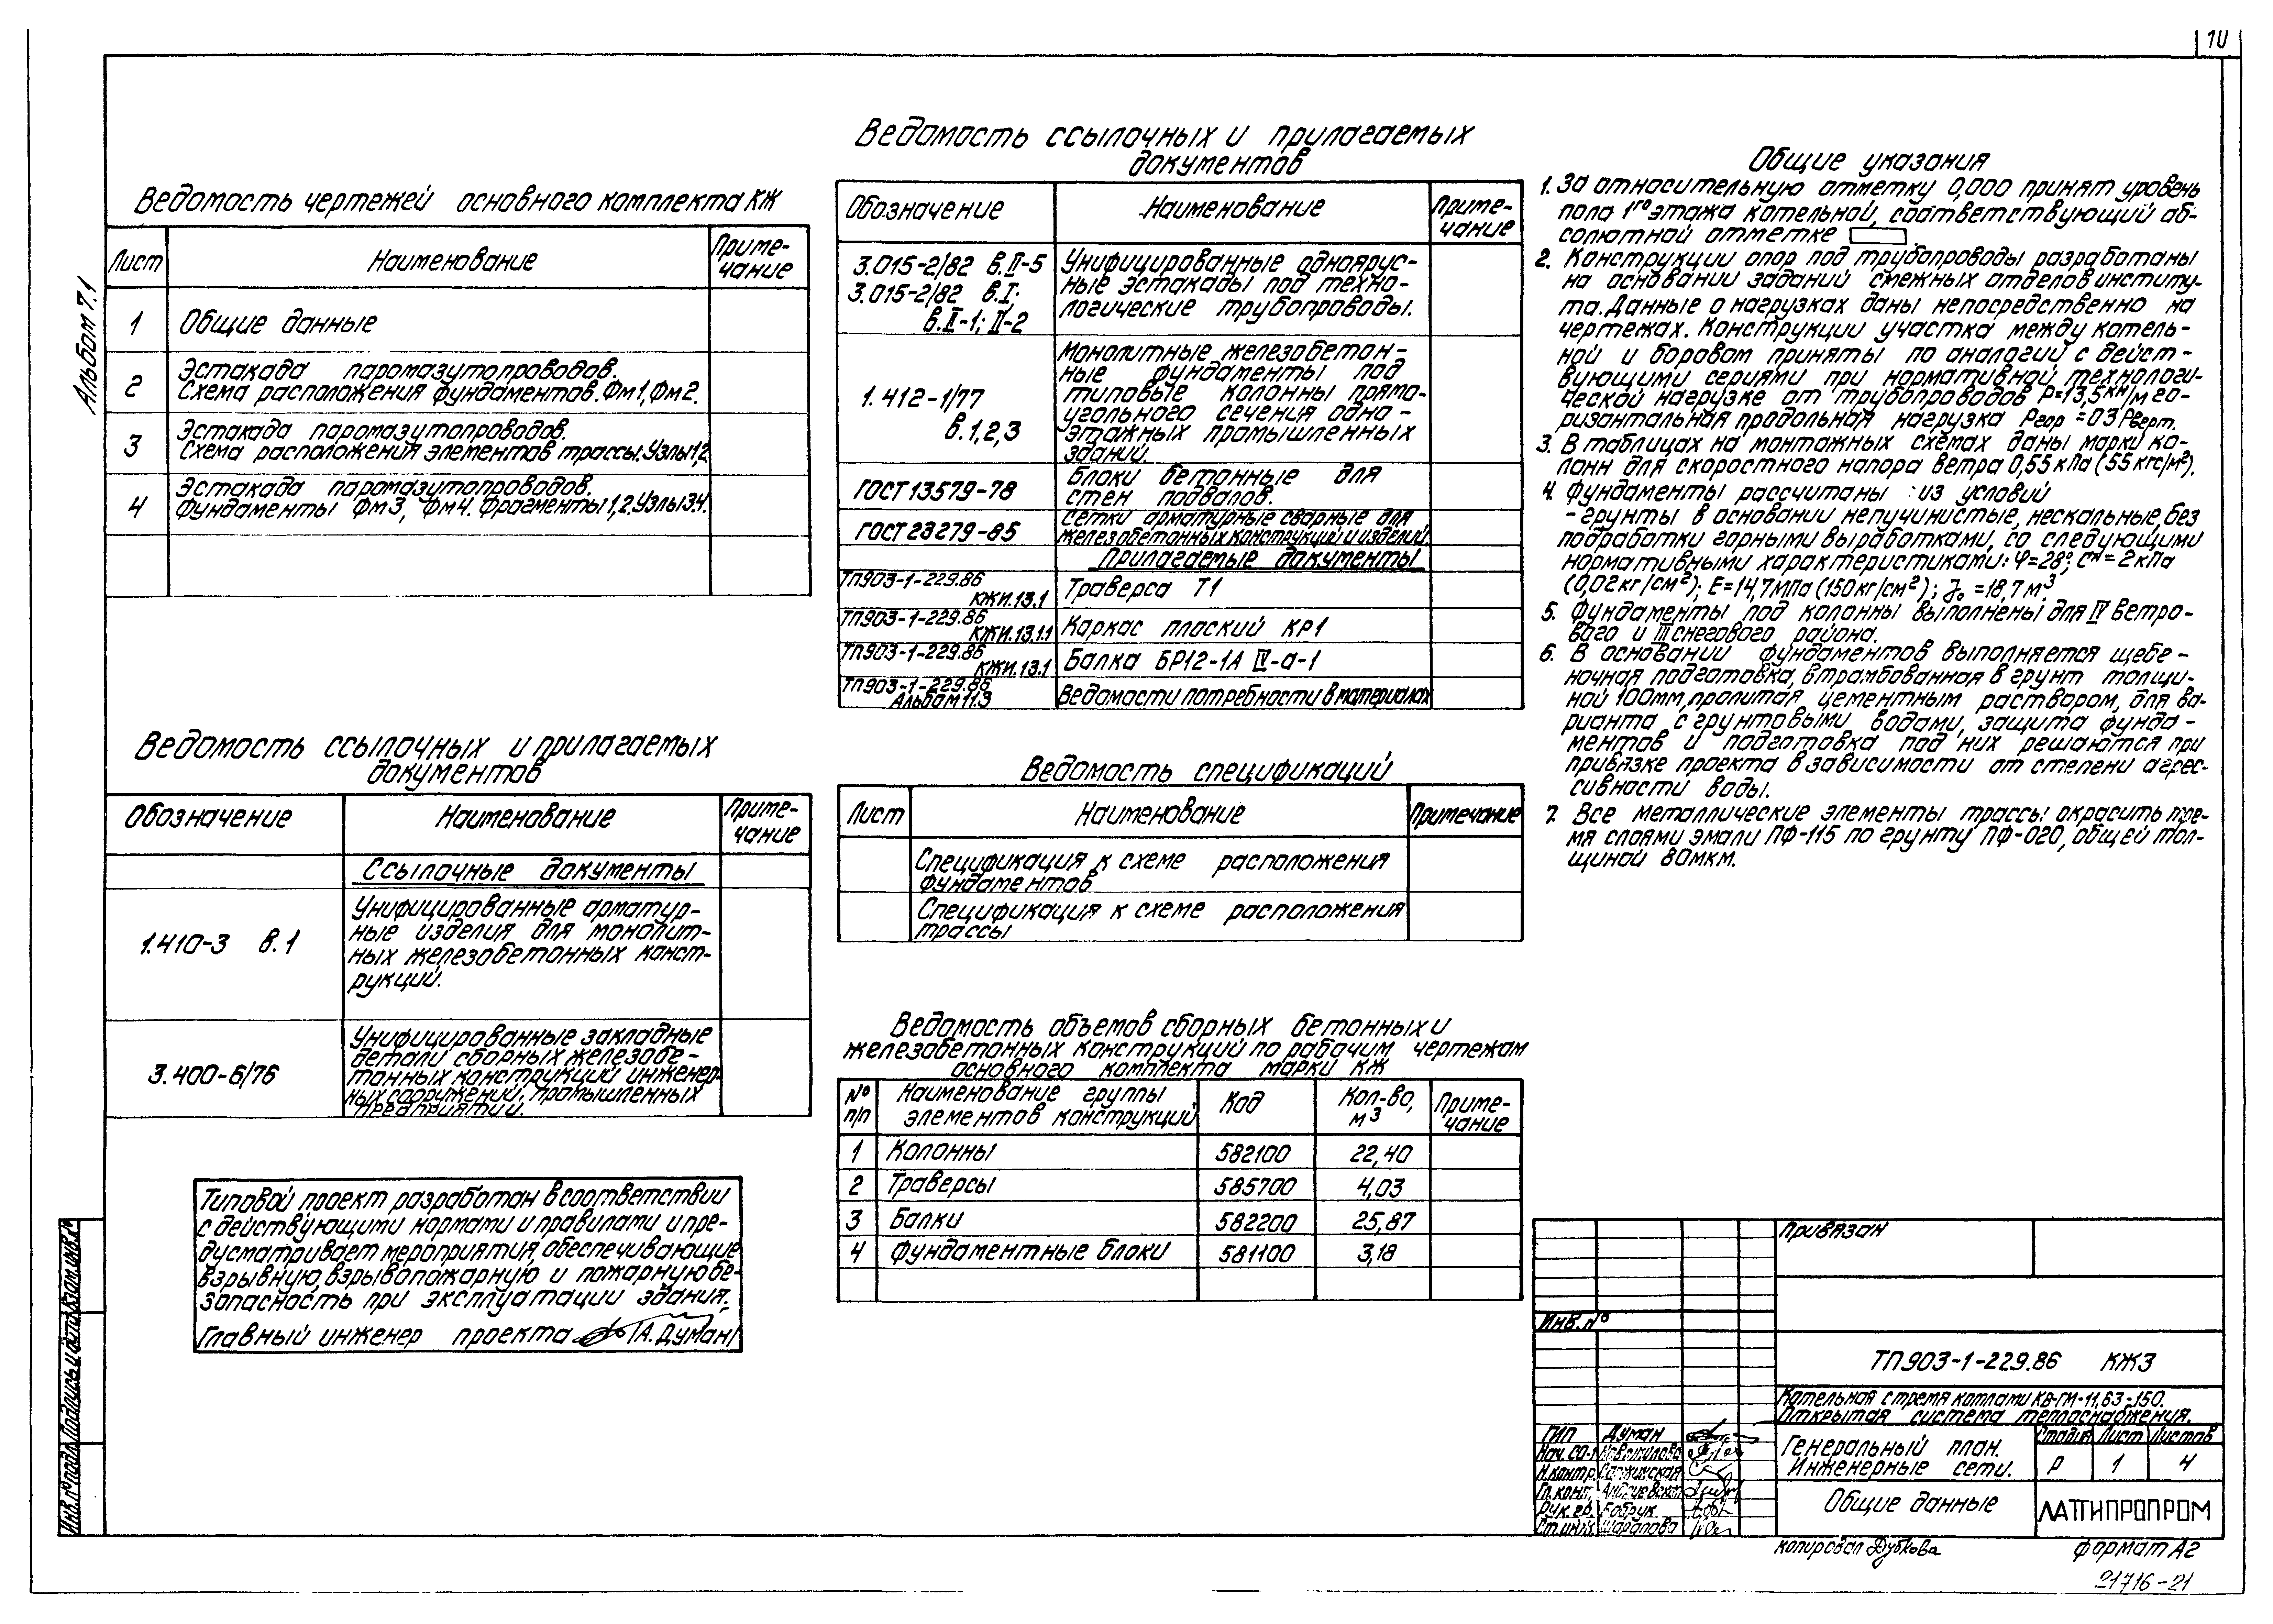 10
Альбом 7.1
Ведомость чертежей основного комплекта КЖ
Лист
Наименование
Приме-
чание
1
Общие данные
2
Эстакада паромазутопроводов.
Схема расположения фундаментов. Фм1, Фм2.
3
Эстакада паромазутопроводов.
Схема расположения элементов трассы. Узлы 1,2.
4
Эстакада паромазутопроводов.
Фундаменты Фм3, Фм4. Фрагменты 1,2. Узлы 3,4.
Ведомость ссылочных и прилагаемых
документов
Обозначение
Наименование
Приме-
чание
Ссылочные документы
1.410-3 в.1
Унифицированные арматур-
ные изделия для монолит-
ных железобетонных конст-
рукций.
3.400-6/76
Унифицированные закладные
детали сборных железобе-
тонных конструкций инженер-
ных сооружений, промышленных
предприятий.
Типовой проект разработан в соответствии
с действующими нормами и правилами и пре-
дусматривает мероприятия, обеспечивающие
взрывную, взрывопожарную и пожарную бе-
зопасность при эксплуатации здания.
Главный инженер проекта /А. Думан/
Ведомость ссылочных и прилагаемых
документов
Обозначение
Наименование
Приме-
чание
3.015-2/82 в.II-5
3.015-2/82 в.I;
в.II-1; II-2
Унифицированные одноярус-
ные эстакады под техно-
логические трубопроводы.
1.412-1/77
в.1,2,3
Монолитные железобетон-
ные фундаменты под
типовые колонны прямо-
угольного сечения одно-
этажных промышленных
зданий.
ГОСТ 13579-78
Блоки бетонные для
стен подвалов.
ГОСТ 23279-85
Сетки арматурные сварные для
железобетонных конструкций и изделий.
Прилагаемые документы
ТП903-1-229.86
КЖИ.13.1
Траверса Т1
ТП903-1-229.86
КЖИ.13.1.1
Каркас плоский КР1
ТП903-1-229.86
КЖИ.13.1
Балка БР12-1А IV-а-1
ТП903-1-229.86
Альбом 11.3
Ведомости потребности в материалах
Ведомость спецификаций
Лист
Наименование
Примечание
Спецификация к схеме расположения
фундаментов
Спецификация к схеме расположения
трассы
Ведомость объемов сборных бетонных и
железобетонных конструкций по рабочим чертежам
основного комплекта марки КЖ
№ п/п
Наименование группы
элементов конструкций
Код
Кол-во, м³
Приме-
чание
1 Колонны 582100 22,40
2 Траверсы 585700 4,03
3 Балки 582200 25,87
4 Фундаментные блоки 581100 3,18
Общие указания
1. За относительную отметку 0,000 принят уровень
пола 1го этажа котельной, соответствующий аб-
солютной отметке
2. Конструкции опор под трубопроводы разработаны
на основании заданий смежных отделов институ-
та. Данные о нагрузках даны непосредственно на
чертежах. Конструкции участка между котель-
ной и боровом приняты по аналогий с дейст-
вующими сериями при нормативной технологи-
ческой нагрузке от трубопроводов P=13,5 кН/м го-
ризантальная продольная нагрузка Pгор =03 Pверт.
3. В таблицах на монтажных схемах даны марки ко-
лонн для скоростного напора ветра 0,55 кПа (55 кгс/м²).
4. Фундаменты рассчитаны из условий
- грунты в основании непучинистые, нескальные, без
подработки горными выработками, со следующими
нормативными характеристиками: φ=28°; Сн=2 кПа
(0,02 кг/см²); E=14,7 МПа (150 кг/см²); γ₀=18,7 м³
5. Фундаменты под колонны выполнены для IV ветро-
вого и III снегового района.
6. В основании фундаментов выполняется щебе-
ночная подготовка, втрамбованная в грунт толщи-
ной 100мм, пролитая цементным раствором, для ва-
рианта с грунтовыми водами, защита фунда-
ментов и подготовка под них решаются при
привязке проекта в зависимости от степени агрес-
сивности воды.
7. Все металлические элементы трассы окрасить тре-
мя слоями эмали ПФ-115 по грунту ПФ-020, общей тол-
щиной
Привязан
Инв. №
ТП903-1-229.86 КЖ3
Котельная с тремя котлами КВ-ГМ-11,63-150.
Открытая система теплоснабжения.
Генеральный план.
Инженерные сети.
Стадия Лист Листов
Р 1 4
Общие данные
ЛАТГИПРОПРОМ
ГИП Думан
Нач. СО-1
Н.контр.
Гл. конт.
Рук. гр. Бобрук
Ст. инж. Шарапова
Инв. № подл. Подпись и дата Взам. инв. №
копировал Дубкова
формат А2
21716-21